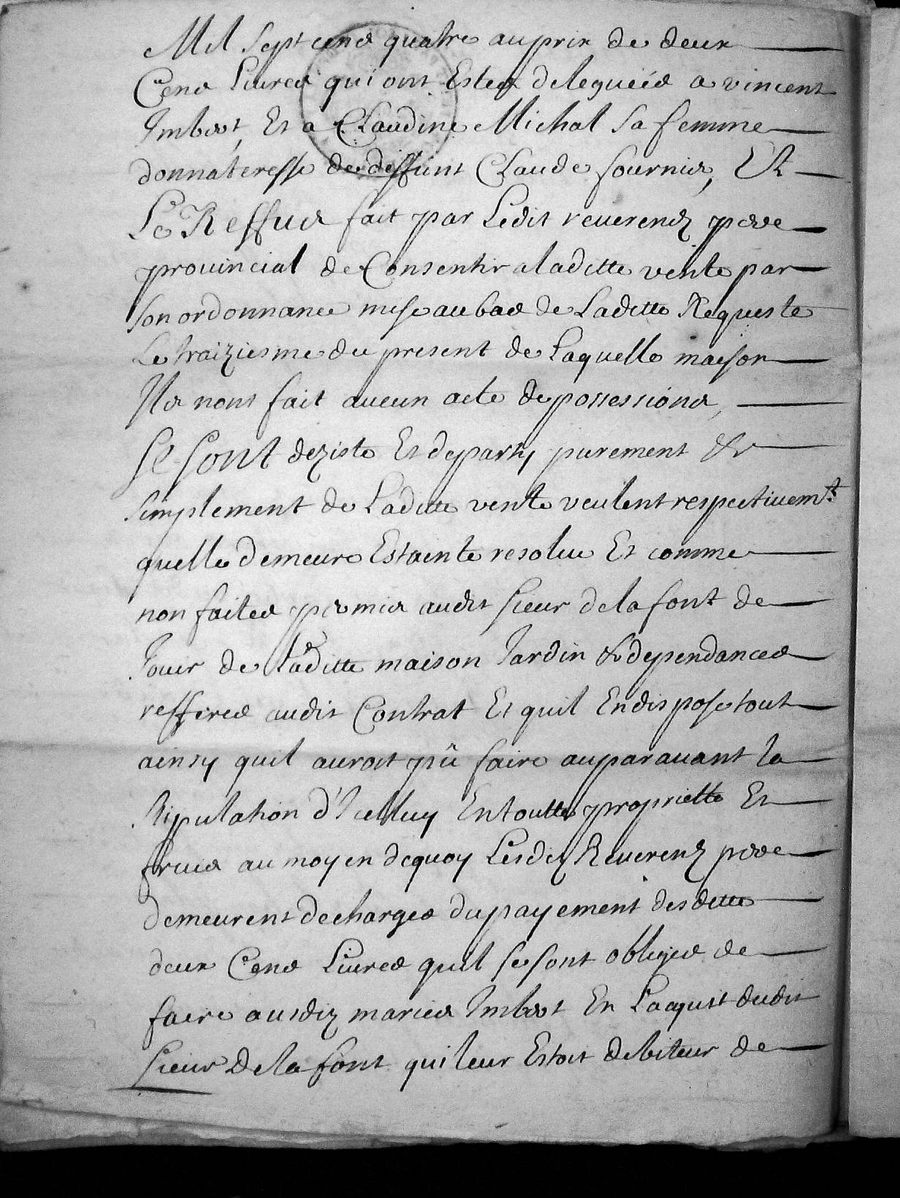 Mil sept cens quatre au prix de deux
Cens Livres qui ont Estes deleguéés a vincent
Imbert, Et a Claudine Michal sa femme
donnateresse de deffunt Claude fournier, Et
Le Reffus fait par Ledit reverend pere
provincial de Consentir a laditte vente par
son ordonnance mise au bas de Laditte Requeste
Le traiziesme du present de Laquelle maison
Ils nont fait aucun acte de possessions,
Se sont deziste Et departy purement &
simplement de Laditte vente veulent respectivemt.
quelle demeure Estainte resolue Et comme
non faitte permis audit sieur de la font de
Jouir de Laditte maison Jardin & dependances
refferes audit Contrat Et quil En dispose tout
ainsy quil auroit pû faire auparavant la
stipulation d'Icelluy En toutte propriette Et
fruis au moyen dequoy Lesdits Reverends peres
demeurent decharges du payement desdittes
deux Cens Livres quil se sont obliges de
faire ausdits maries Imbert En Lacquit dudit
sieur de la font qui leur Estoit debiteur de